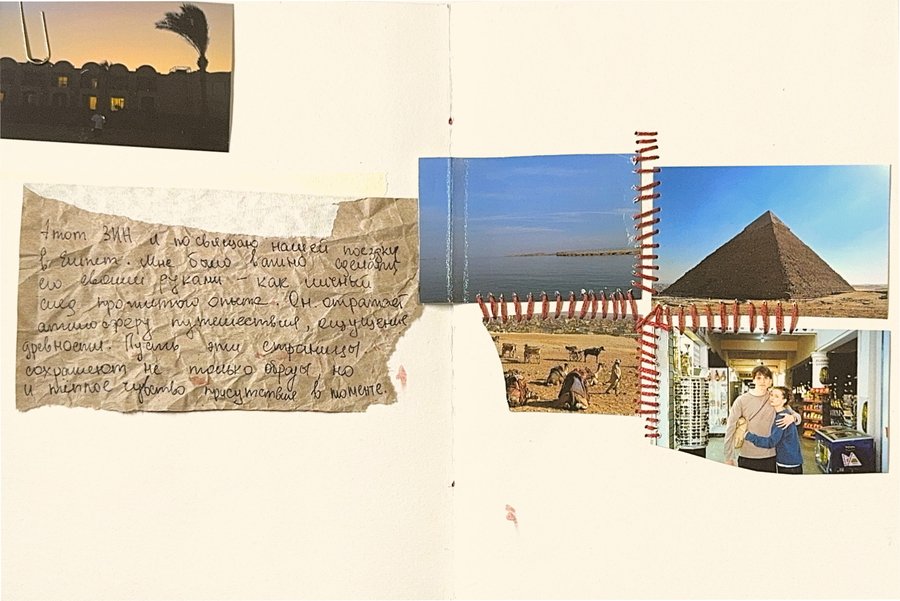 Этот ЗИН я посвящаю нашей поездке
в Египет. Мне было важно сделать
его своими руками – как личный
след прожитого опыта. Он отражает
атмосферу путешествия, ощущение
древности. Пусть эти страницы
сохраняют не только образы, но
и тёплое чувство присутствия в моменте.